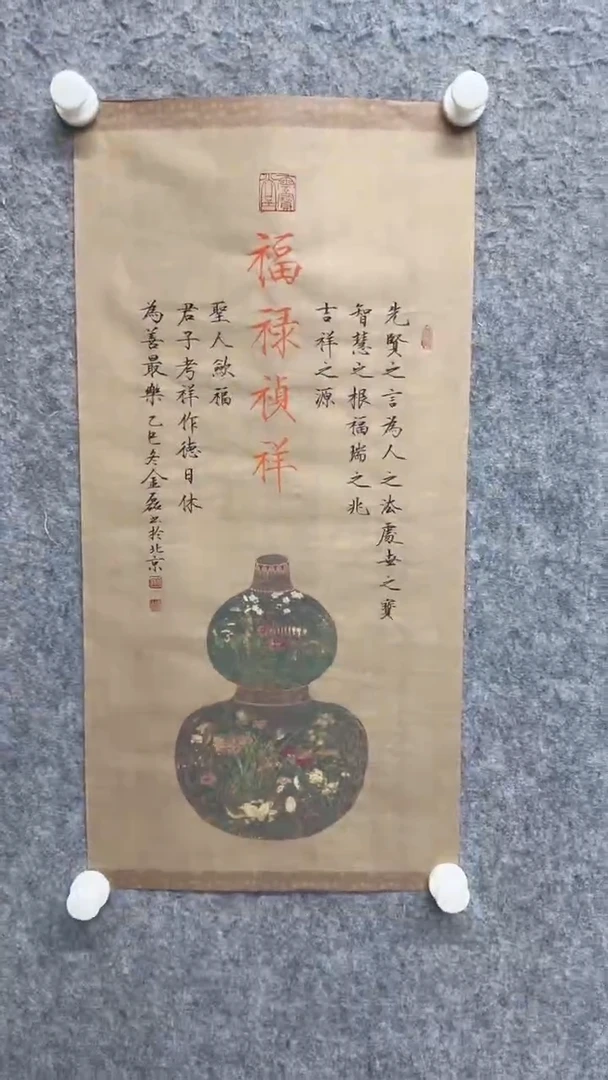 福禄祯祥
先賢之言為人之法處世之寶
智慧之根福瑞之兆
吉祥之源
聖人歛福
君子考祥作德日休
為善最樂乙巳冬金磊书於北京